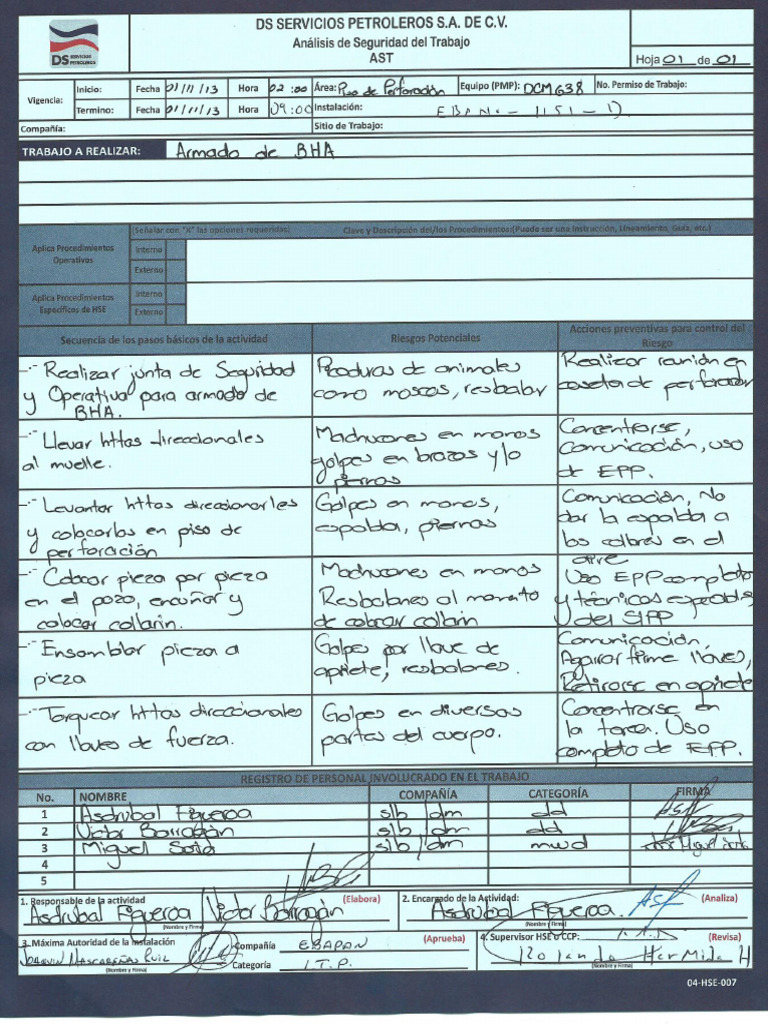 DS SERVICIOS PETROLEROS S.A. DE C.V.
Análisis de Seguridad del Trabajo
AST
DS SERVICIOS PETROLEROS
Hoja 01 de 01
Vigencia:
Inicio: Fecha 01/11/13 Hora 02:00 Área: Piso de Perforación Equipo (PMP): DCM638 No. Permiso de Trabajo:
Termino: Fecha 01/11/13 Hora 09:00 Instalación: EBANO-1151-D
Compañía: Sitio de Trabajo:
TRABAJO A REALIZAR: Armado de BHA
(Señalar con "X" las opciones requeridas) Clave y Descripción del/los Procedimientos:(Puede ser una Instrucción, Lineamiento, Guía, etc.)
Aplica Procedimientos Operativos
Interno
Externo
Aplica Procedimientos Específicos de HSE
Interno
Externo
Secuencia de los pasos básicos de la actividad Riesgos Potenciales Acciones preventivas para control del Riesgo
- Realizar junta de Seguridad
y Operativa para armado de
BHA.
Picaduras de animales
como moscos, resbalar
Realizar reunión en
caseta de perforador
- Llevar httas direccionales
al muelle.
Machucones en manos
golpes en brazos y/o
piernas
Concentrarse,
Comunicación, uso
de EPP.
- Levantar httas direccionarles
y colocarlas en piso de
perforación
Golpes en manos,
espalda, piernas
Comunicación, No
dar la espalda a
los en el
aire
- Colocar pieza por pieza
en el pozo, encuñar y
colocar collarin.
Machucones en manos
Resbalones al momento
de colocar collarin
Uso EPP completo
y técnicas
del SIPP
- Ensamblar pieza a
pieza
Golpes por llave de
apriete, resbalones.
Comunicación,
Agarrar firme llaves,
Retirarse en apriete
- Torquear httas direccionales
con llaves de fuerza.
Golpes en diversas
partes del cuerpo.
Concentrarse en
la tarea. Uso
completo de EPP.
REGISTRO DE PERSONAL INVOLUCRADO EN EL TRABAJO
No. NOMBRE COMPAÑÍA CATEGORÍA FIRMA
1 Asdrubal Figueroa slb/dm dd
2 Victor Barragán slb/dm dd
3 Miguel Soto slb/dm mwd
4
5
1. Responsable de la actividad (Elabora)
Asdrubal Figueroa Victor Barragán
(Nombre y Firma)
2. Encargado de la Actividad: (Analiza)
Asdrubal Figueroa.
(Nombre y Firma)
3. Máxima Autoridad de la Instalación
(Nombre y Firma)
Compañía EBAPAN (Aprueba)
Categoría I.T.P.
4. Supervisor HSE o CCP: (Revisa)
Rolando Hermida H
(Nombre y Firma)
04-HSE-007